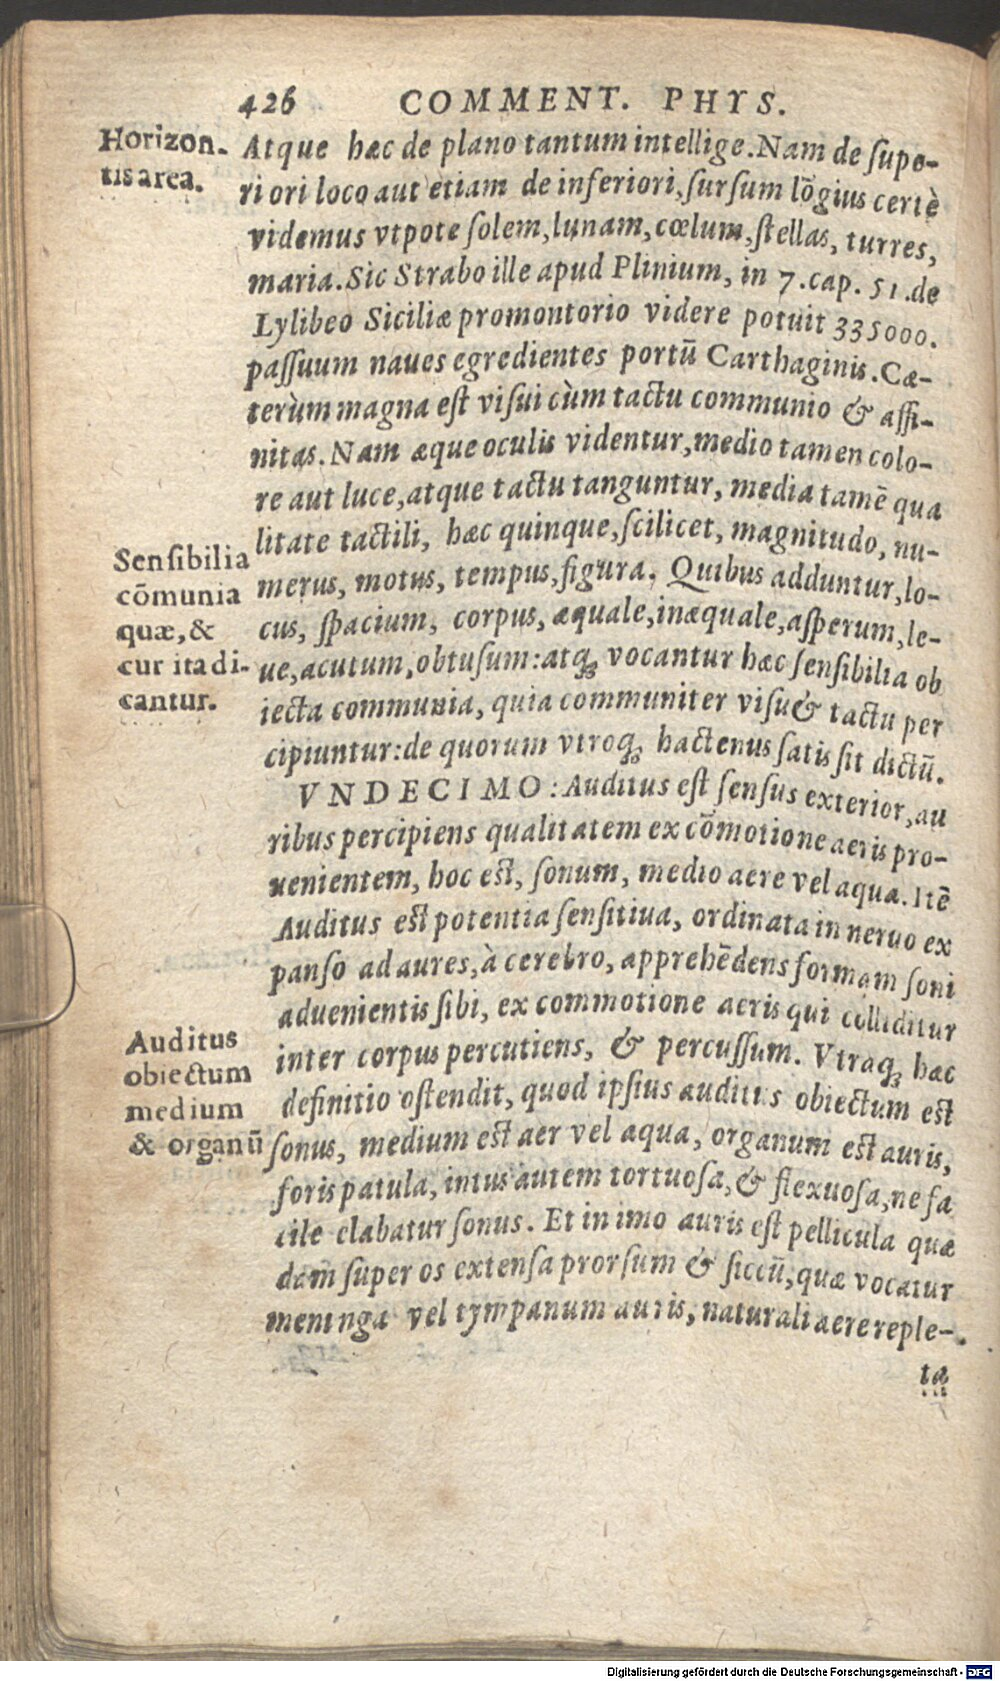 426 COMMENT. PHYS.
Horizon-
tis area.
Atque hæc de plano tantum intellige. Nam de supe-
riori loco aut etiam de inferiori, sursum lõgius certè
videmus vtpote solem, lunam, cœlum, stellas, turres,
maria. Sic Strabo ille apud Plinium, in 7. cap. 51. de
Lylibeo Siciliæ promontorio videre potuit 335000.
passuum naues egredientes portũ Carthaginis. Cæ-
terùm magna est visui cùm tactu communio & affi-
nitas. Nam æque oculis videntur, medio tamen colo-
re aut luce, atque tactu tanguntur, media tamẽ qua
litate tactili, hæc quinque, scilicet, magnitudo, nu-
merus, motus, tempus, figura. Quibus adduntur, lo-
cus, spacium, corpus, æquale, inæquale, asperum, le-
ue, acutum, obtusum: atq; vocantur hæc sensibilia ob
iecta communia, quia communiter visu & tactu per
cipiuntur: de quorum vtroq; hactenus satis sit dictũ.
Sensibilia
cõmunia
quæ, &
cur ita di-
cantur.
VNDECIMO: Auditus est sensus exterior, au
ribus percipiens qualitatem ex cõmotione aeris pro-
uenientem, hoc est, sonum, medio aere vel aqua. Itẽ
Auditus est potentia sensitiua, ordinata in neruo ex
panso ad aures, à cerebro, apprehẽdens formam soni
aduenientis sibi, ex commotione aeris qui colliditur
inter corpus percutiens, & percussum. Vtraq; hæc
definitio ostendit, quod ipsius auditus obiectum est
sonus, medium est aer vel aqua, organum est auris,
foris patula, intus autem tortuosa, & flexuosa, ne fa
cile elabatur sonus. Et in imo auris est pellicula quæ
dam super os extensa prorsum & siccũ, quæ vocatur
meninga vel tympanum auris, naturali aere reple-
Auditus
obiectum
medium
& organũ
ta
Digitalisierung gefördert durch die Deutsche Forschungsgemeinschaft - DFG